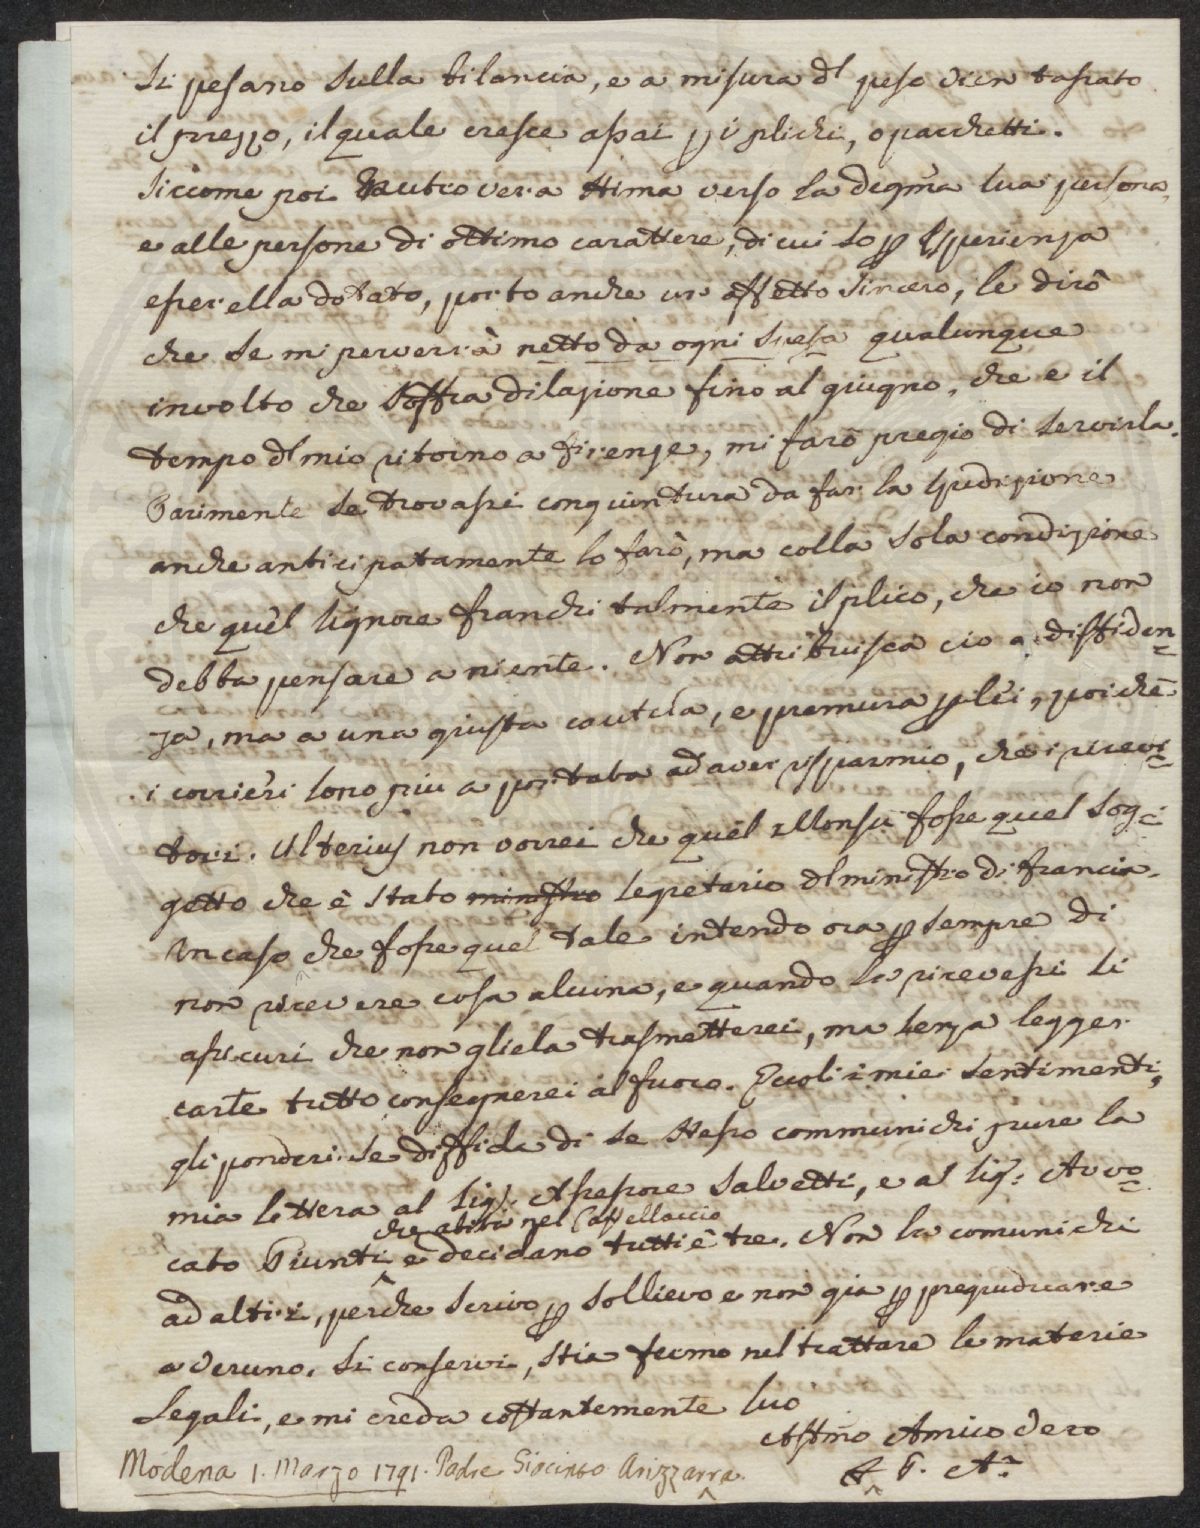 Si pesano sulla bilancia, e a misura dl peso vien tassato
il prezzo, il quale cresce assai p i plichi, o pacchetti.
Siccome poi Nutro vera stima verso la degma sua persona,
e alle persone di ottimo carattere, di cui so p esperienza
esser ella dotato, porto anche un affetto sincero, le dirò
che se mi perverrà netto da ogni spesa qualunque
involto che soffra dilazione fino al giugno, che è il
tempo dl mio ritorno a firenze, mi farò pregio di servirla.
Parimente se trovassi congiuntura da far la spedizione
anche anticipatamente lo farò, ma colla sola condizione
che quel signore franchi talmente il plico, che io non
debba pensare a niente. Non attribuisca cio a diffiden=
za, ma a una giusta cautela, e premura p lei, poichè
i corrieri sono piu a portata ad aver risparmio, che i ricevi=
tori. Ulterius non vorrei che quel Monsù fosse quel sog=
getto che è stato ministro segretario dl ministro di francia.
In caso che fosse quel tale intendo ora p sempre di
non ricevere cosa alcuna, e quando la ricevessi si
assicuri che non gliela trasmetterei, ma senza legger
carte tutto consegnerei al fuoco. Ecco li i miei sentimenti,
gli ponderi. Se diffida di se stesso communichi pure la
mia lettera al Sigr. Assessore Salvetti, e al Sigr: Avvo=
che abita nel Castellaccio
cato Giunti, e decidano tutti è tre. Non la comunichi
ad altri, perche scrivo p sollievo e non gia p pregiudicare
a veruno. Si conservi, stia fermo nel trattare le materie
Legali, e mi creda costantemente Suo
Affmo Amico Vero
F. G. A.
Modena 1. Marzo 1791. Padre Giacinto Arizzarra.